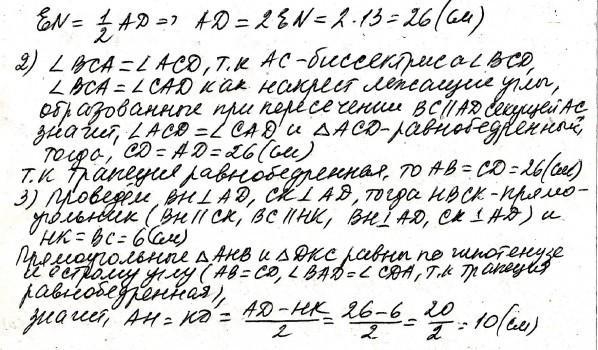 EN = 1/2 AD => AD = 2EN = 2·13 = 26 (см)
2) ∠BCA = ∠ACD, т.к AC-биссектриса ∠BCD,
∠BCA = ∠CAD как накрест лежащие углы,
образованные при пересечении BC∥AD секущей AC
значит, ∠ACD = ∠CAD и △ACD-равнобедренный,
тогда, CD = AD = 26 (см)
т.к трапеция равнобедренная, то AB = CD = 26 (см)
3) Проведём BH⊥AD, CK⊥AD, тогда HBCK-прямо-
угольник (BH∥CK, BC∥HK, BH⊥AD, CK⊥AD) и
HK = BC = 6 (см)
Прямоугольные △AHB и △DKC равны по гипотенузе
и острому углу (AB=CD, ∠BAD=∠CDA, т.к трапеция
равнобедренная),
значит, AH = KD = (AD-HK)/2 = (26-6)/2 = 20/2 = 10 (см)